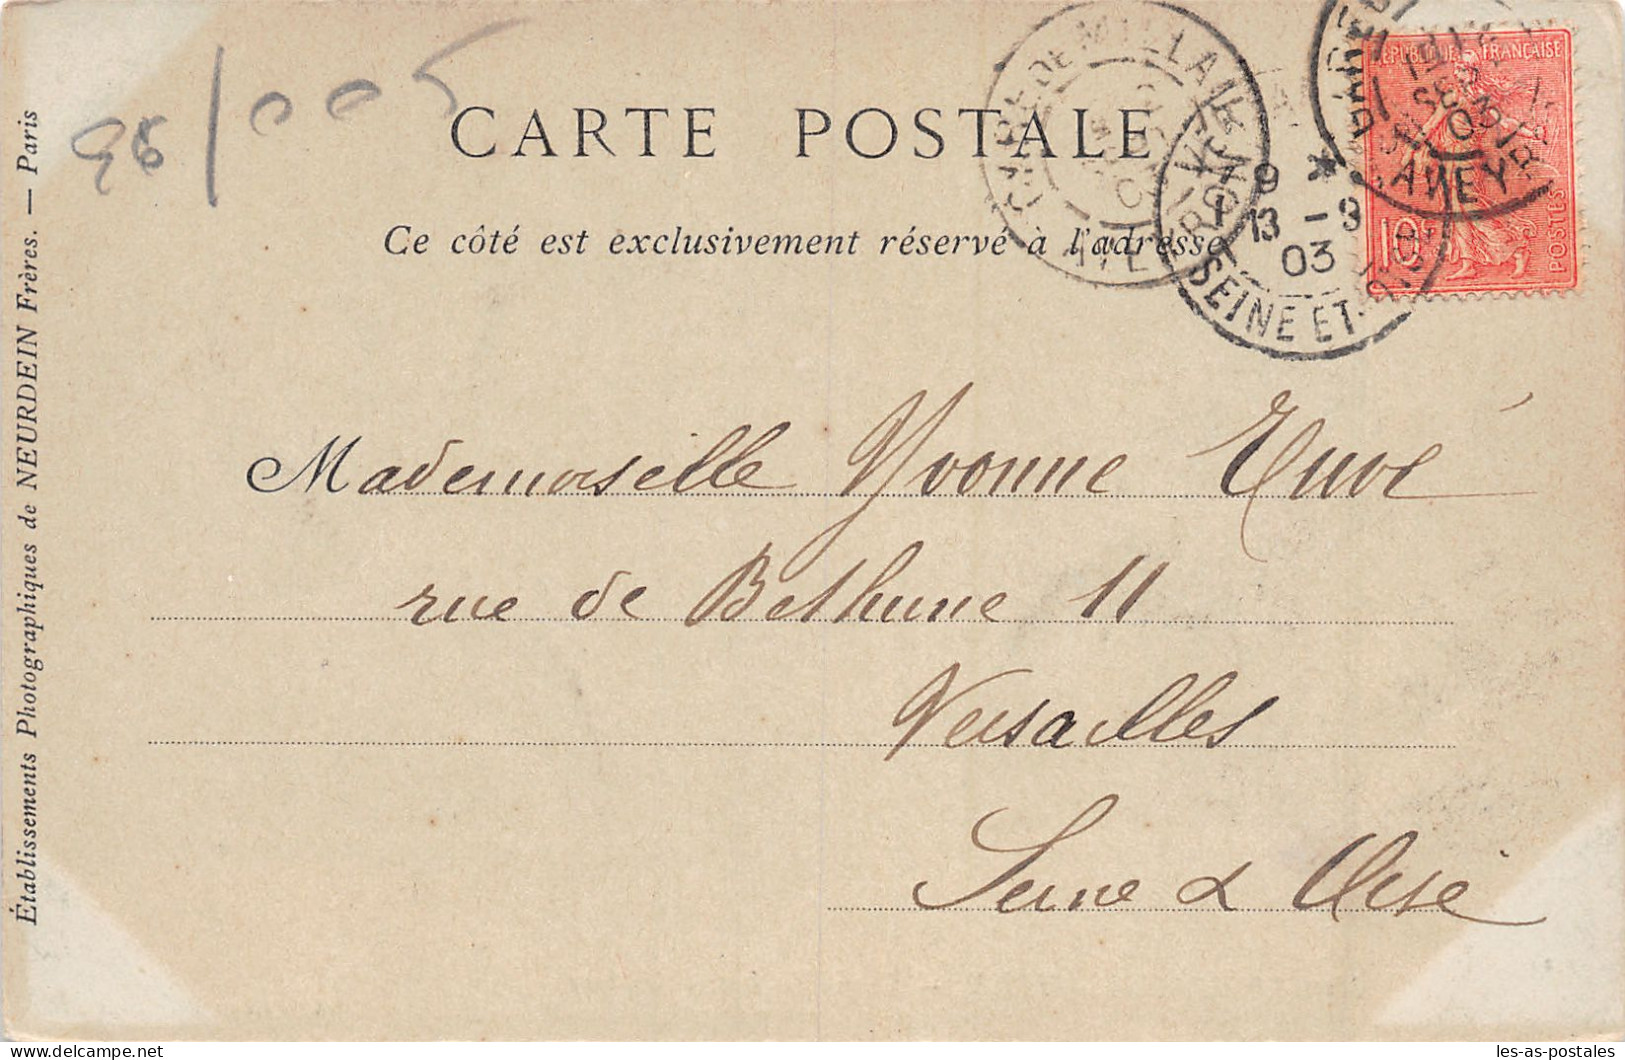 95/005
CARTE POSTALE
Ce côté est exclusivement réservé à l'adresse
RÉPUBLIQUE FRANÇAISE
10c
POSTES
GARE DE MILLAU
AVEYRON
AVEYR
13 - 9
03
SEINE ET-OISE
Mademoiselle Yvonne
rue de Bethune 11
Versailles
Seine & Oise
Établissements Photographiques de NEURDEIN Frères. — Paris
les-as-postales